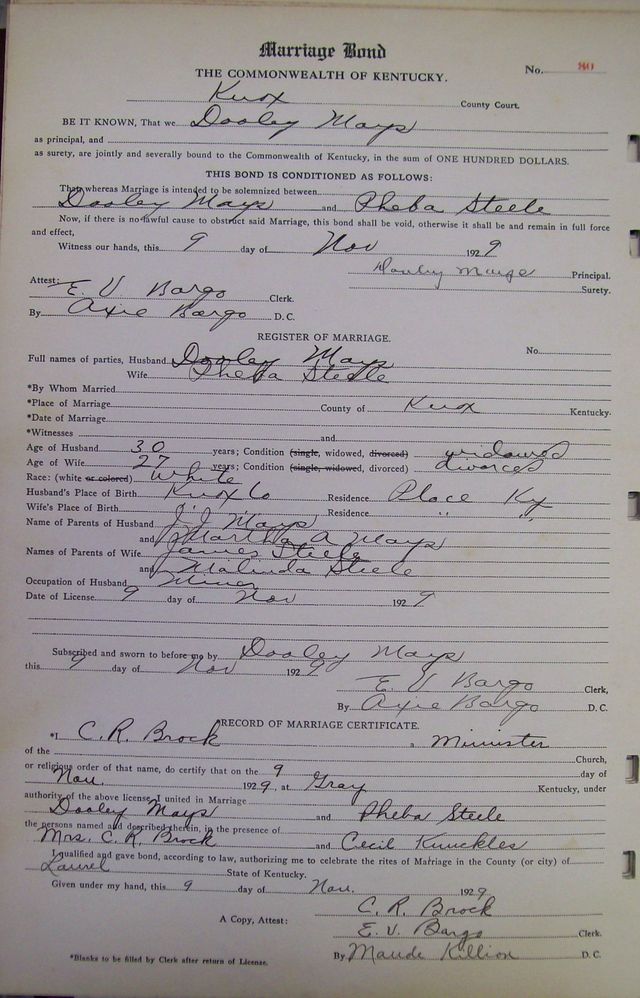 Marriage Bond
THE COMMONWEALTH OF KENTUCKY. No. 80
Knox County Court.
BE IT KNOWN, That we Dooley Mays
as principal, and
as surety, are jointly and severally bound to the Commonwealth of Kentucky, in the sum of ONE HUNDRED DOLLARS.
THIS BOND IS CONDITIONED AS FOLLOWS:
That whereas Marriage is intended to be solemnized between
Dooley Mays and Pheba Steele
Now, if there is no lawful cause to obstruct said Marriage, this bond shall be void, otherwise it shall be and remain in full force
and effect,
Witness our hands, this 9 day of Nov 1929
Dooley Principal.
Attest: Surety.
E. V Bargo Clerk.
By Axie Bargo D. C.
REGISTER OF MARRIAGE.
Full names of parties, Husband Dooley Mays No.
Wife Pheba Steele
*By Whom Married
*Place of Marriage County of Knox Kentucky.
*Date of Marriage
*Witnesses and
Age of Husband 30 years; Condition (single, widowed, divorced) widowed
Age of Wife 27 years; Condition (single, widowed, divorced) divorced
Race: (white or colored) White
Husband's Place of Birth Knox Co Residence Place Ky
Wife's Place of Birth " " Residence " "
Name of Parents of Husband J. J. Mays
and Martha A Mays
Names of Parents of Wife James Steele
and Malinda Steele
Occupation of Husband Miner
Date of License 9 day of Nov 1929
Subscribed and sworn to before me by Dooley Mays
this 9 day of Nov 1929
E. V Bargo Clerk,
By Axie Bargo D. C.
RECORD OF MARRIAGE CERTIFICATE.
*I C. R. Brock , Minister
of the Church,
or religious order of that name, do certify that on the 9 day of
Nov. 1929, at Gray Kentucky, under
authority of the above license, I united in Marriage
Dooley Mays and Pheba Steele
the persons named and described therein, in the presence of
Mrs. C. R. Brock and Cecil Knuckles
I qualified and gave bond, according to law, authorizing me to celebrate the rites of Marriage in the County (or city) of
Laurel State of Kentucky.
Given under my hand, this 9 day of Nov. 1929
C. R. Brock
A Copy, Attest: E. V. Bargo Clerk.
*Blanks to be filled by Clerk after return of License. By Maude Killion D. C.